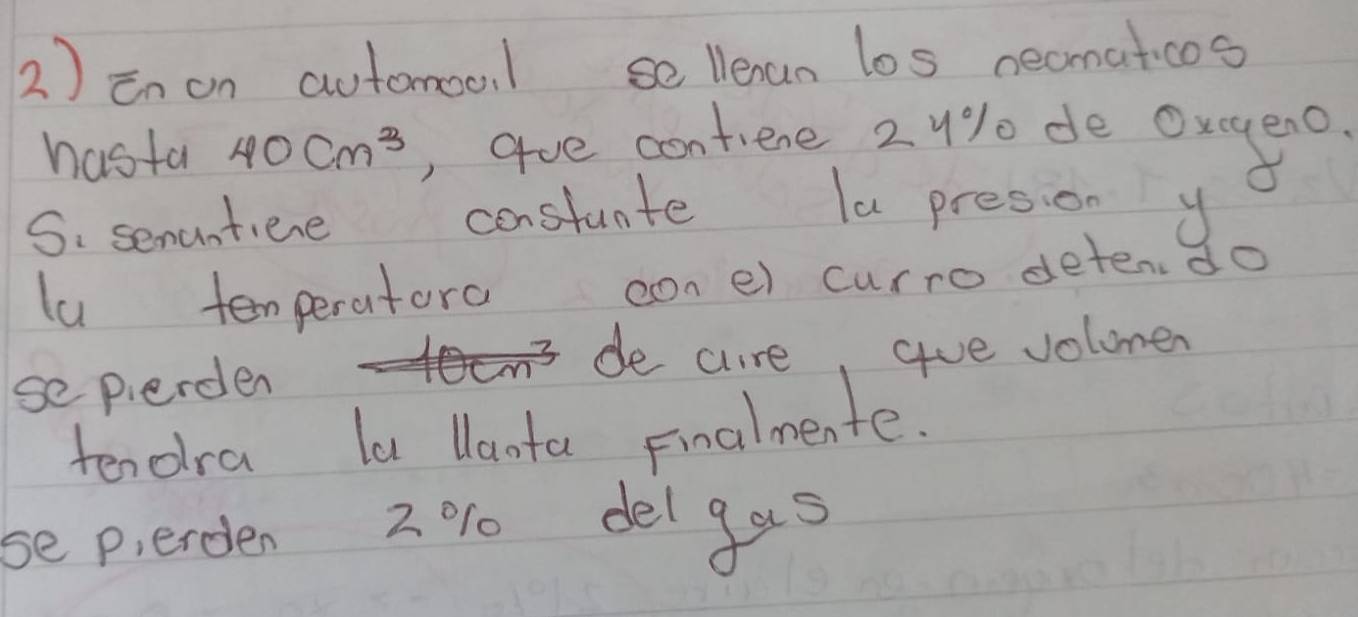 2) En un automovil se llenan los neumaticos
hasta 40 cm³, que contiene 24% de Oxigeno.
Si semantiene constante la presion y
la temperatura con el carro detenido
se pierden ~~10cm³~~ de aire, que volumen
tendra la llanta Finalmente.
se pierden 2% del gas